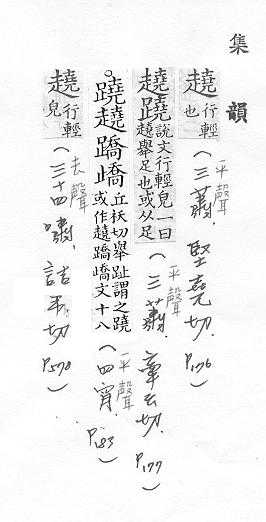 集韻
趬行輕也(平聲 三蕭.堅堯切.P.176)
趬蹺說文行輕皃一曰趬舉足也或从足(平聲 三蕭.牽幺切.P.177)
。蹺趬蹻嶠丘袄切舉趾謂之蹺或作趬蹻嶠文十八(平聲 四宵.P.183)
趬行輕皃(去聲 三十四嘯.詰弔切.P.578)